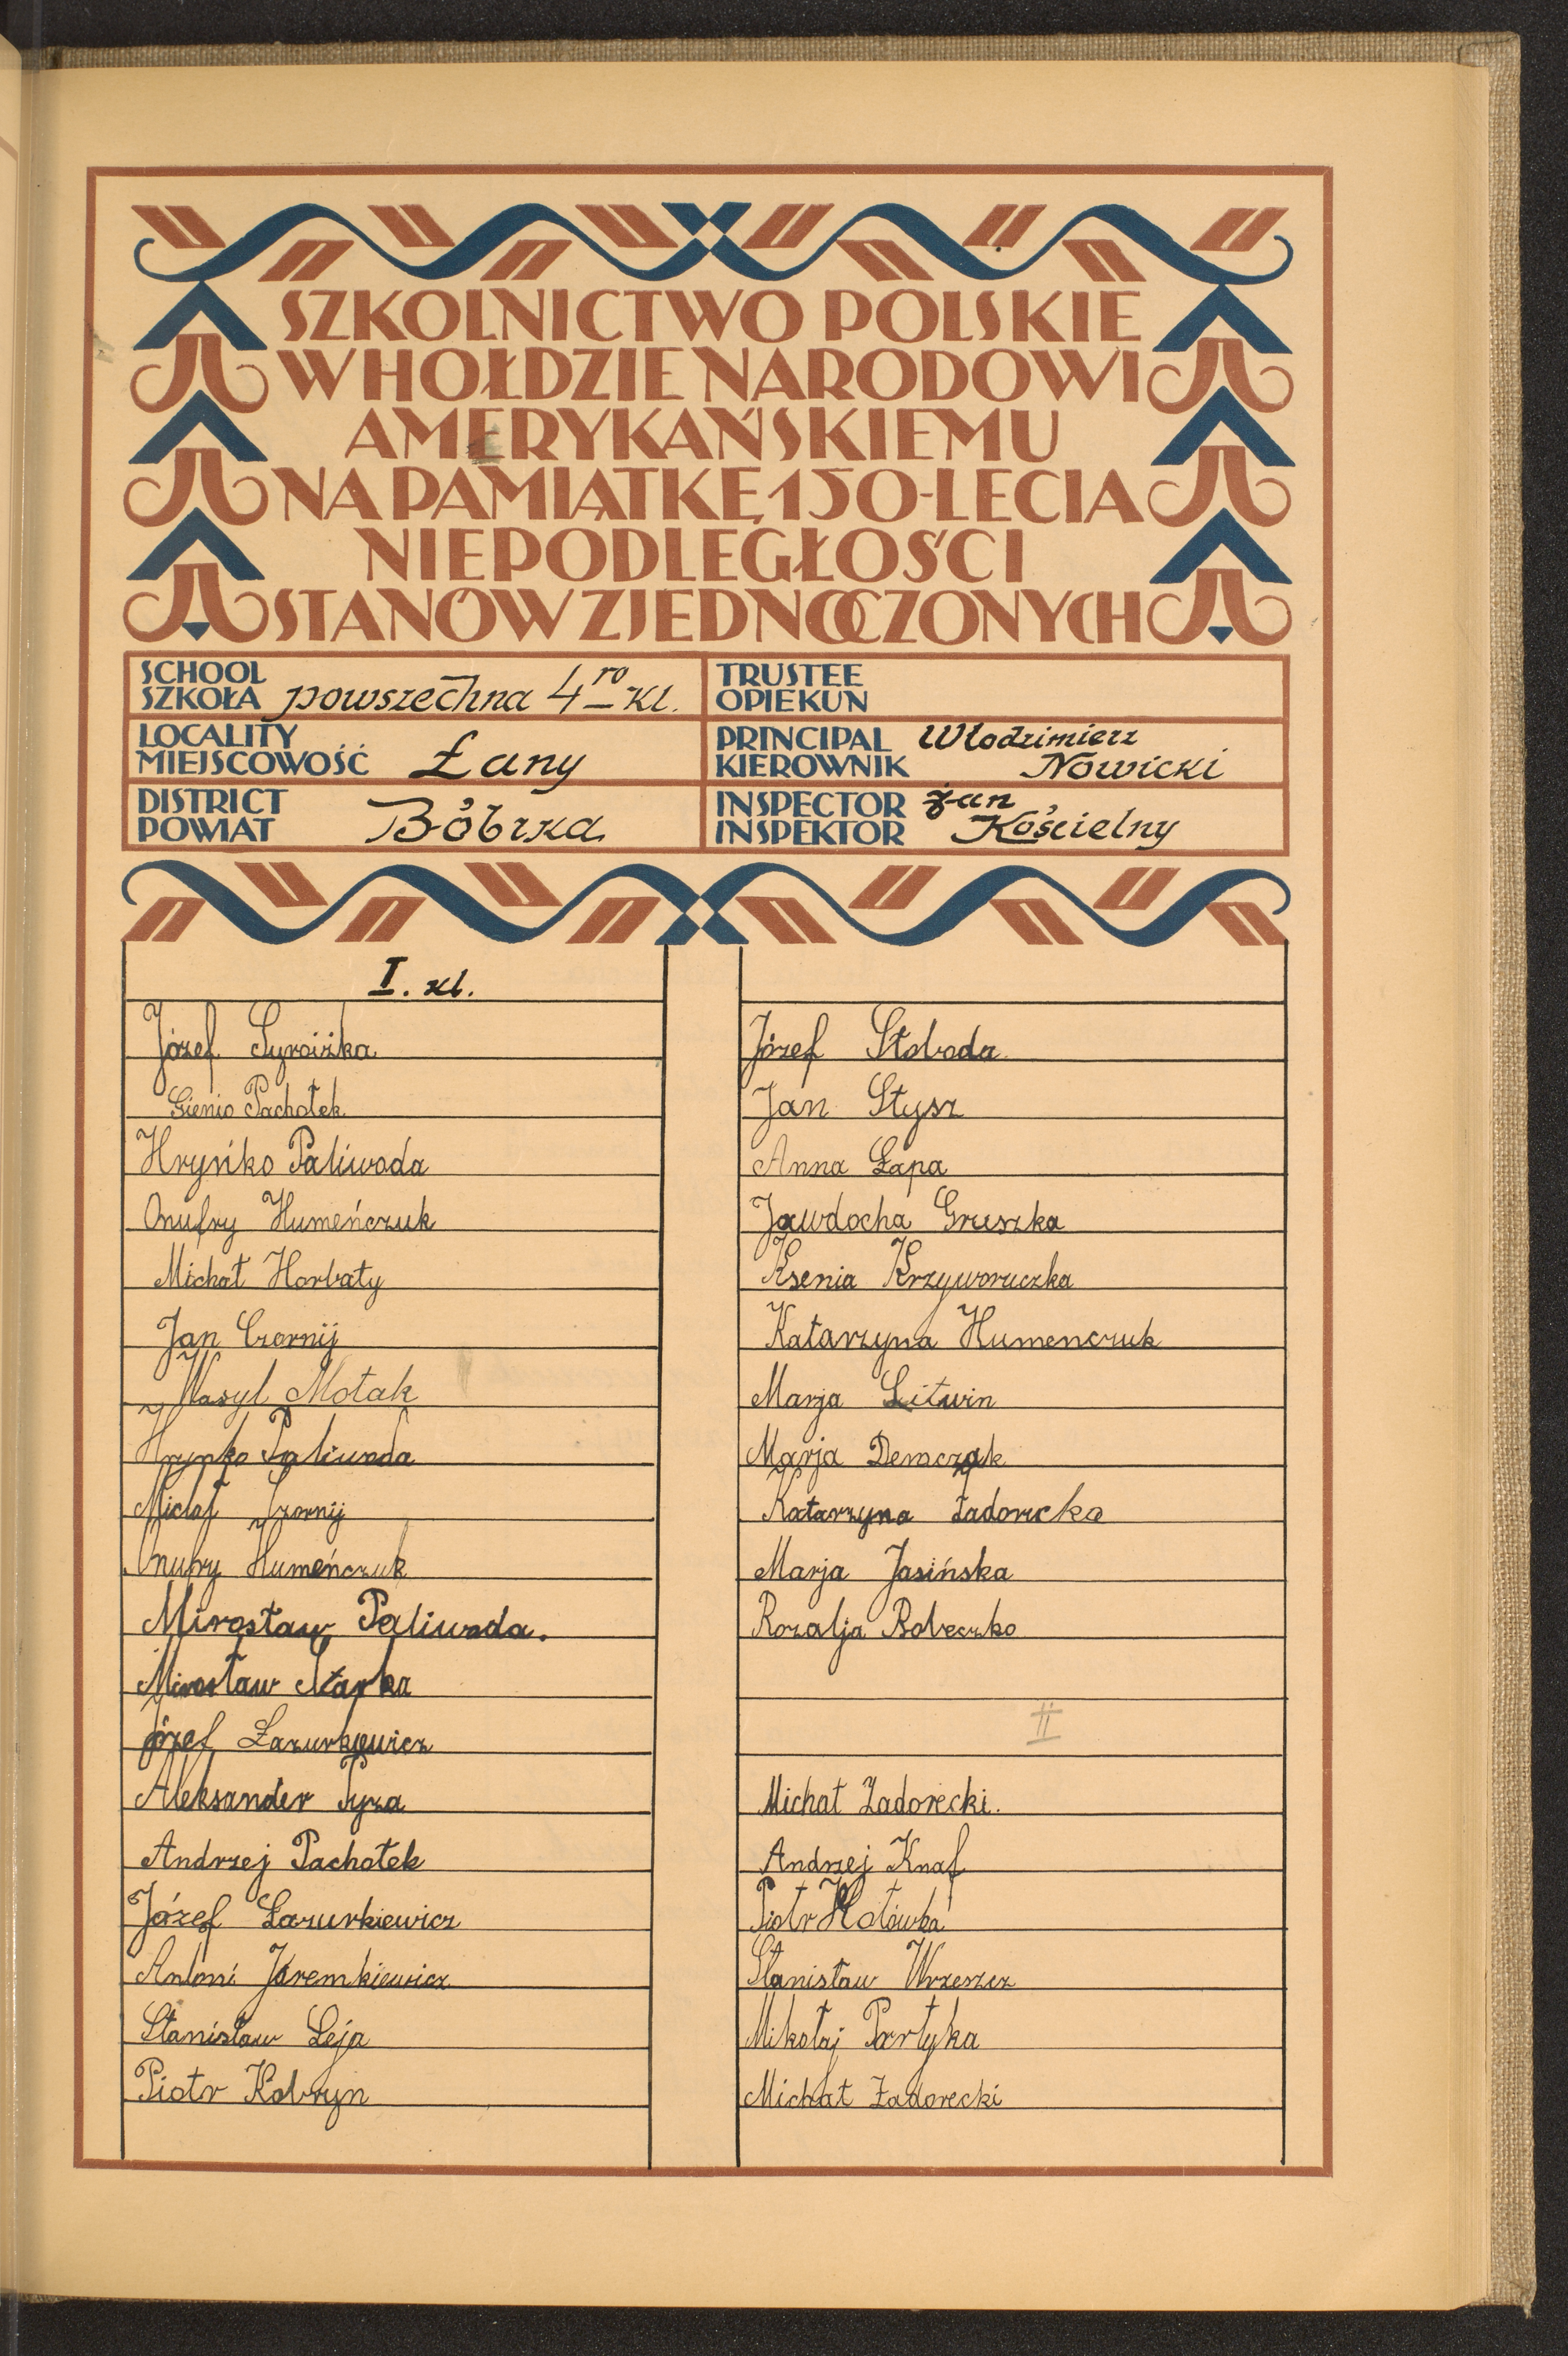 SZKOLNICTWO POLSKIE
W HOŁDZIE NARODOWI
AMERYKAŃSKIEMU
NA PAMIĄTKĘ 150-LECIA
NIEPODLEGŁOŚCI
STANÓW ZJEDNOCZONYCH
SCHOOL
SZKOŁA powszechna 4ro kl.
LOCALITY
MIEJSCOWOŚĆ Łany
DISTRICT
POWIAT Bóbrka
TRUSTEE
OPIEKUN
PRINCIPAL Włodzimierz
KIEROWNIK Nowicki
INSPECTOR Jan
INSPEKTOR Kościelny
I. kl.
Józef Syroiżka
Gienio Pachołek
Hryńko Paliwoda
Onufry Humeńczuk
Michał Horbaty
Jan Czornij
Wasyl Motak
Hrynko Paliwoda
Michał Czornij
Onufry Humeńczuk
Mirosław Paliwoda.
Mirosław Skarka
Józef Łazurkiewicz
Aleksander Pyza
Andrzej Pachołek
Józef Łazurkiewicz
Antoni Jaremkiewicz
Stanisław Leja
Piotr Kobryn
Józef Słoboda
Jan Stysz
Anna Łapa
Jawdocha Gruszka
Ksenia Krzyworuczka
Katarzyna Humenczuk
Marja Litwin
Marja Demczak
Katarzyna Zadorecka
Marja Jasińska
Rozalja Bobeczko
II
Michał Zadorecki.
Andrzej Knaf
Piotr Hotówka
Stanisław Wrzeszcz
Mikołaj Partyka
Michał Zadorecki